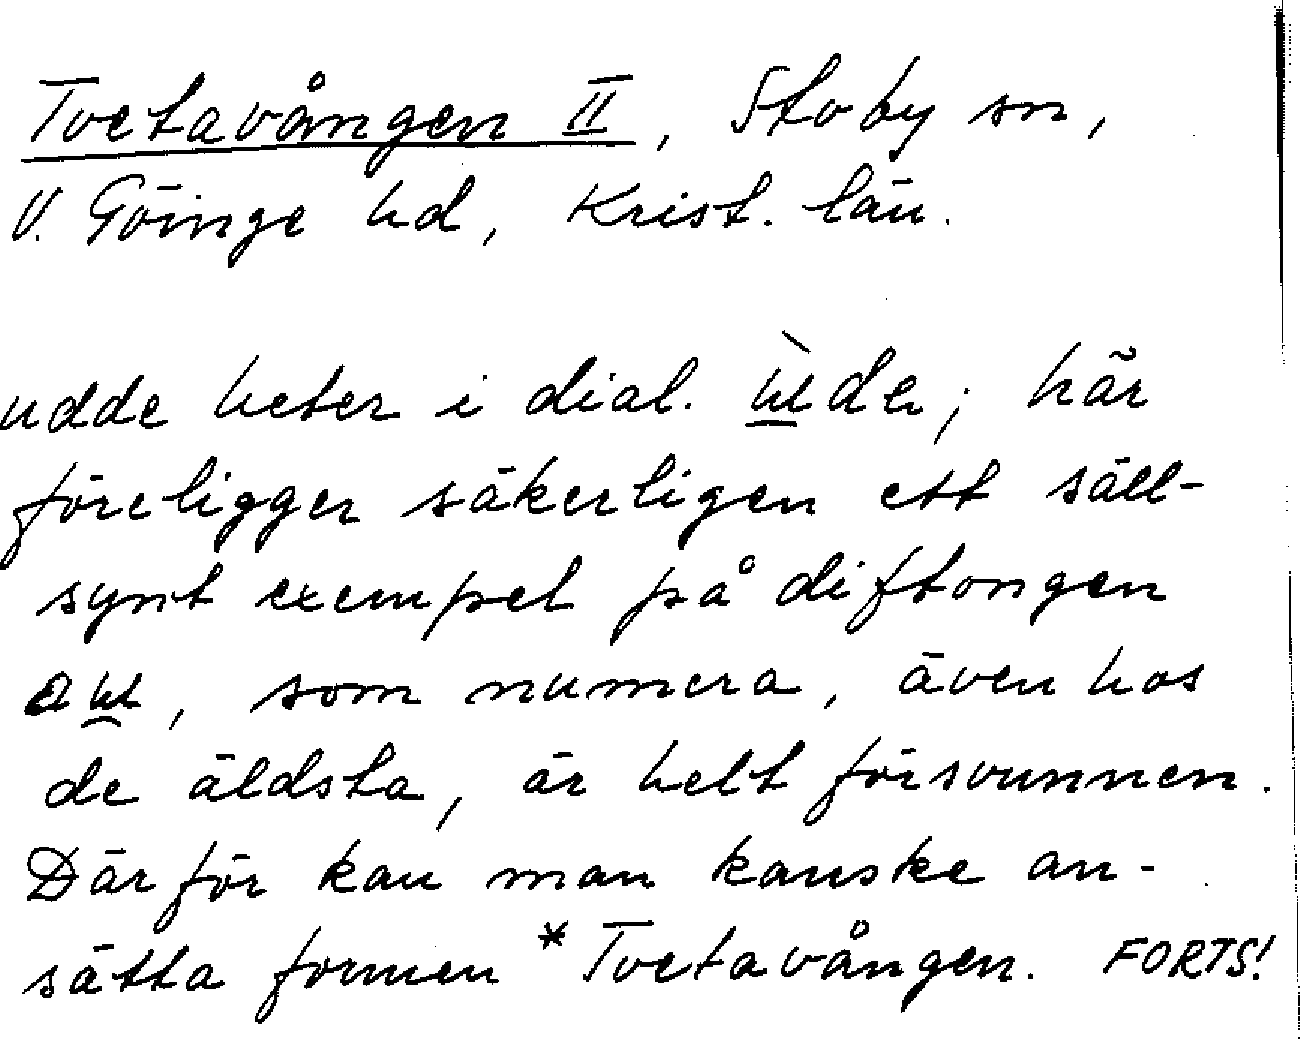 Tvetavången II, Stoby sn,
V. Göinge hd, Krist. län.
udde heter i dial. de; här
föreligger säkerligen ett säll-
synt exempel på diftongen
, som numera, även hos
de äldsta, är helt försvunnen.
Därför kan man kanske an-
sätta formen *Tvetavången. FORTS!